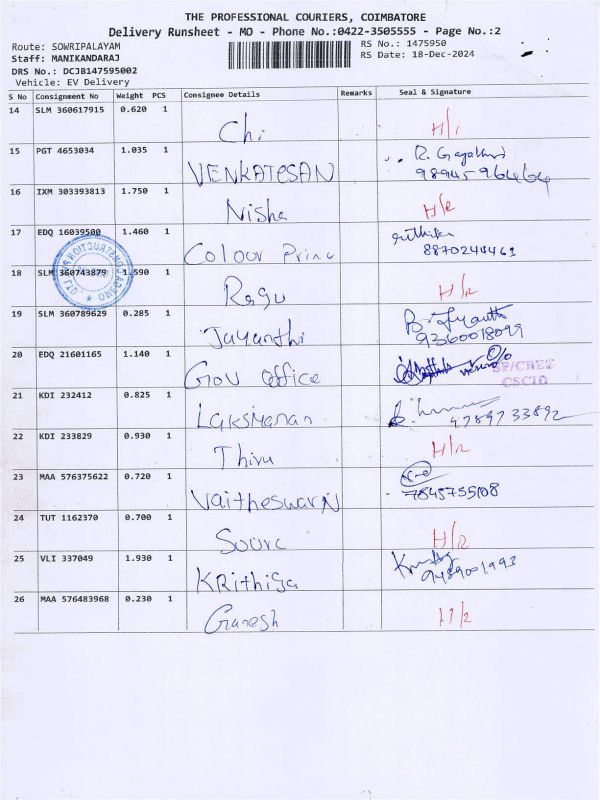 THE PROFESSIONAL COURIERS, COIMBATORE
Delivery Runsheet - MO - Phone No.:0422-3505555 - Page No.:2
Route: SOWRIPALAYAM
RS No.: 1475950
Staff: MANIKANDARAJ
RS Date: 18-Dec-2024
DRS No.: DCJB147595002
Vehicle: EV Delivery
S No Consignment No Weight PCS Consignee Details Remarks Seal & Signature
14 SLM 360617915 0.620 1 Chi
15 PGT 4653034 1.035 1 VENKATESAN R. Gayathri
16 IXM 303393813 1.750 1 Nisha H/R
17 EDQ 16039500 1.460 1 Colour Prin
8870244463
18 SLM 360743879 1.590 1 Ragu H/R
19 SLM 360789629 0.285 1 Jayanthi
9360018099
20 EDQ 21601165 1.140 1 Gov office
SP/CBEZ
CSCID
21 KDI 232412 0.825 1 Laksmanan
4789733892
22 KDI 233829 0.930 1 Thiru H/R
23 MAA 576375622 0.720 1 Vaitheswarn
7845755108
24 TUT 1162370 0.700 1 H/R
25 VLI 337049 1.930 1 KRithiga
9489001993
26 MAA 576483968 0.230 1 Ganesh H/R